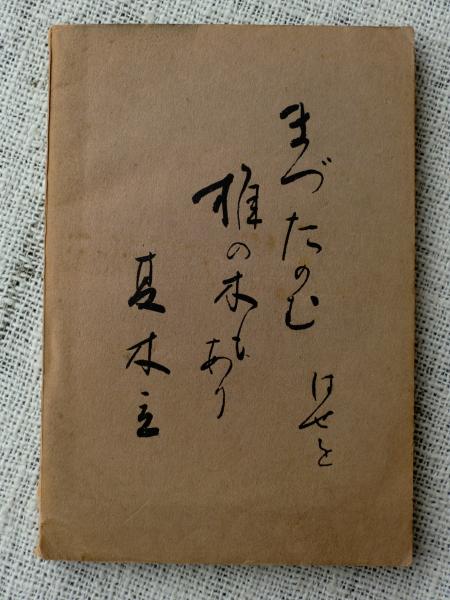 まづたのむ
椎の木もあり
夏木立
はせを